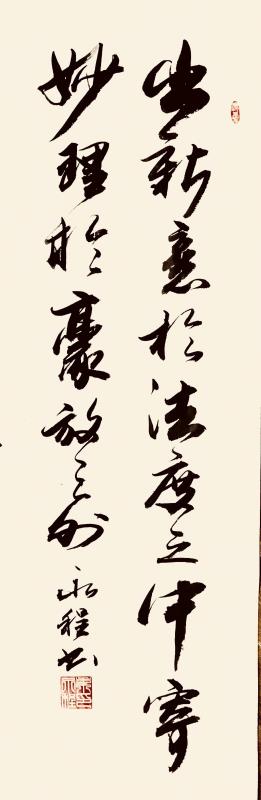 出新意於法度之中寄
妙理於豪放之外
永程书